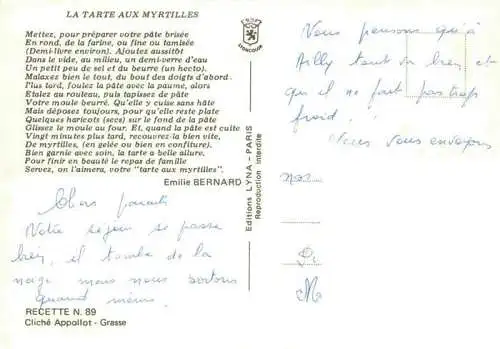 LA TARTE AUX MYRTILLES
Mettez, pour préparer votre pâte brisée
En rond, de la farine, ou fine ou tamisée
(Demi-livre environ). Ajoutez aussitôt
Dans le vide, au milieu, un demi-verre d'eau
Un petit peu de sel et du beurre (un hecto).
Malaxez bien le tout, du bout des doigts d'abord
Plus tard, foulez la pâte avec la paume, alors
Etalez au rouleau, puis tapissez de pâte
Votre moule beurré. Qu'elle y cuise sans hâte
Mais déposez toujours, pour qu'elle reste plate
Quelques haricots (secs) sur le fond de la pâte
Glissez le moule au four. Et, quand la pâte est cuite
Vingt minutes plus tard, recouvrez-la bien vite,
De myrtilles, (en gelée ou bien en confiture).
Bien garnie avec soin, la tarte a belle allure.
Pour finir en beauté le repas de famille
Servez, on l'aimera, votre "tarte aux myrtilles".
Emilie BERNARD
Chers parents
Notre séjour se passe
bien, il tombe de la
neige mais nous sortons
quand même.
RECETTE N. 89
Cliché Appollot - Grasse
LYNCOLOR
Editions LYNA - PARIS
Reproduction interdite
Nous pensons qu'à
Ailly tout va bien et
qu'il ne fait pas trop
froid.
Nous vous envoyons
nos